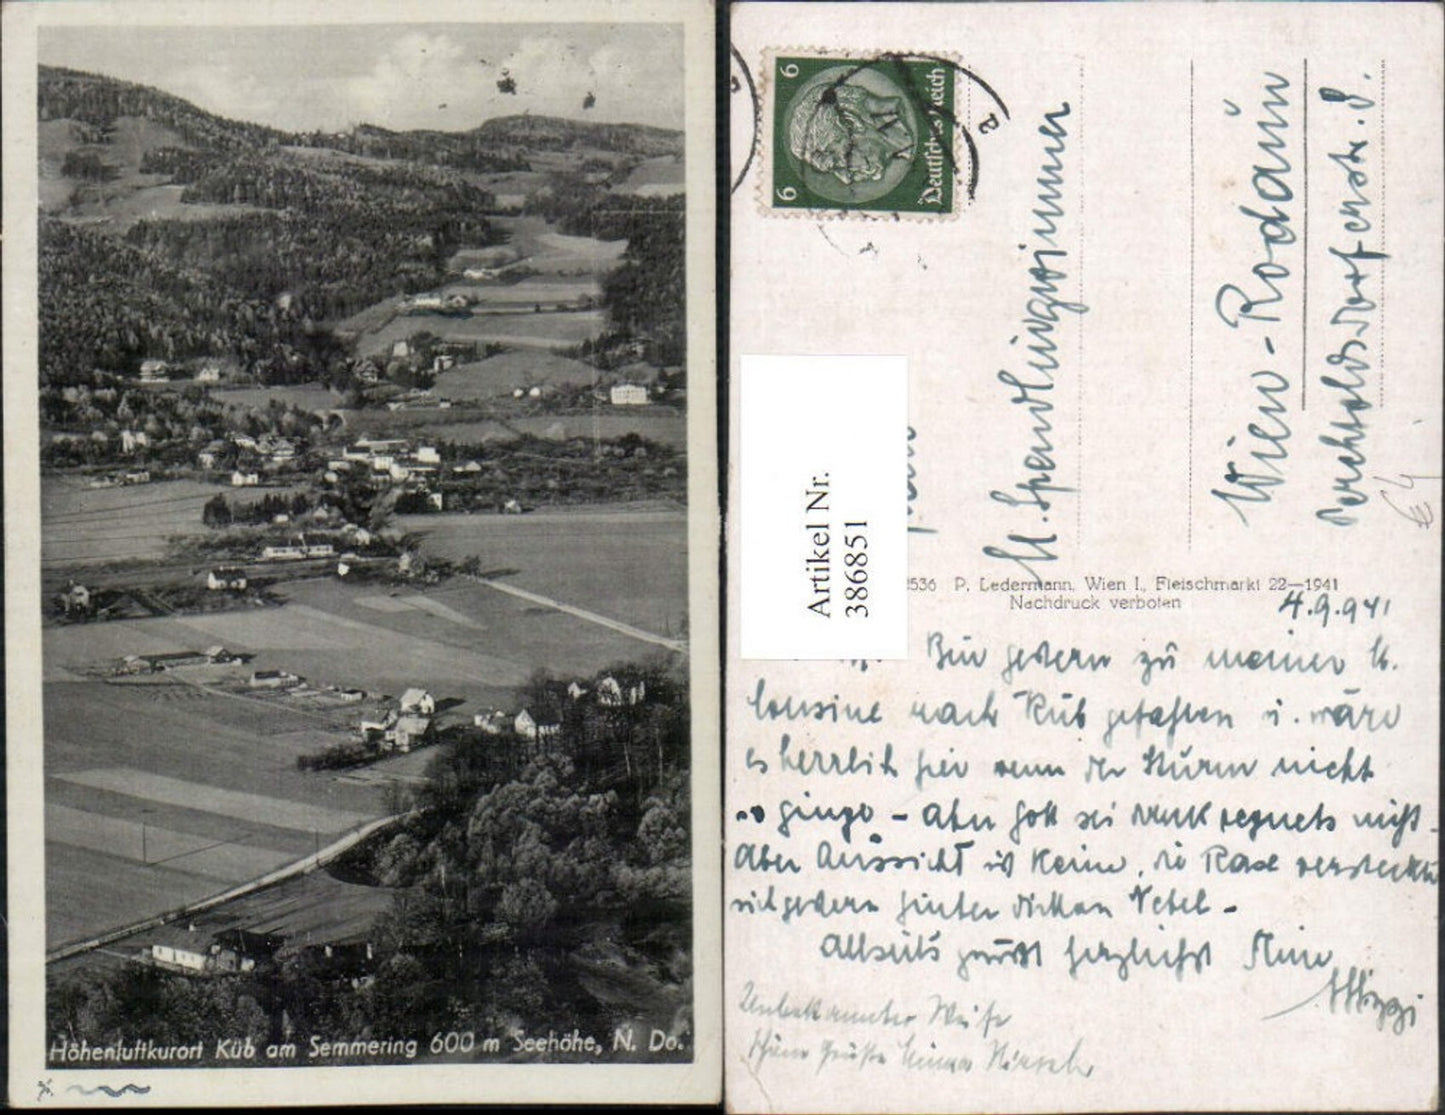 Höhenluftkurort Küb am Semmering 600 m Seehöhe, N. Do.
6 6
Deutsches Reich
Artikel Nr.
386851
Wien - Rodaun
2536 P. Ledermann, Wien I., Fleischmarkt 22—1941
Nachdruck verboten
4.9.941
Bin gestern zu meiner lb.
Cousine nach Küb gefahren u. wäre
es herrlich hier wenn der Sturm nicht
so ginge - aber Gott sei Dank regnets nicht -
Aber Aussicht ist keine, die Rax versteckte
sich gestern hinter dicken Nebel -
Allseits grüßt herzlichst Eure
Mizzi
Unbekannter Weise
schöne Grüße
€ 4